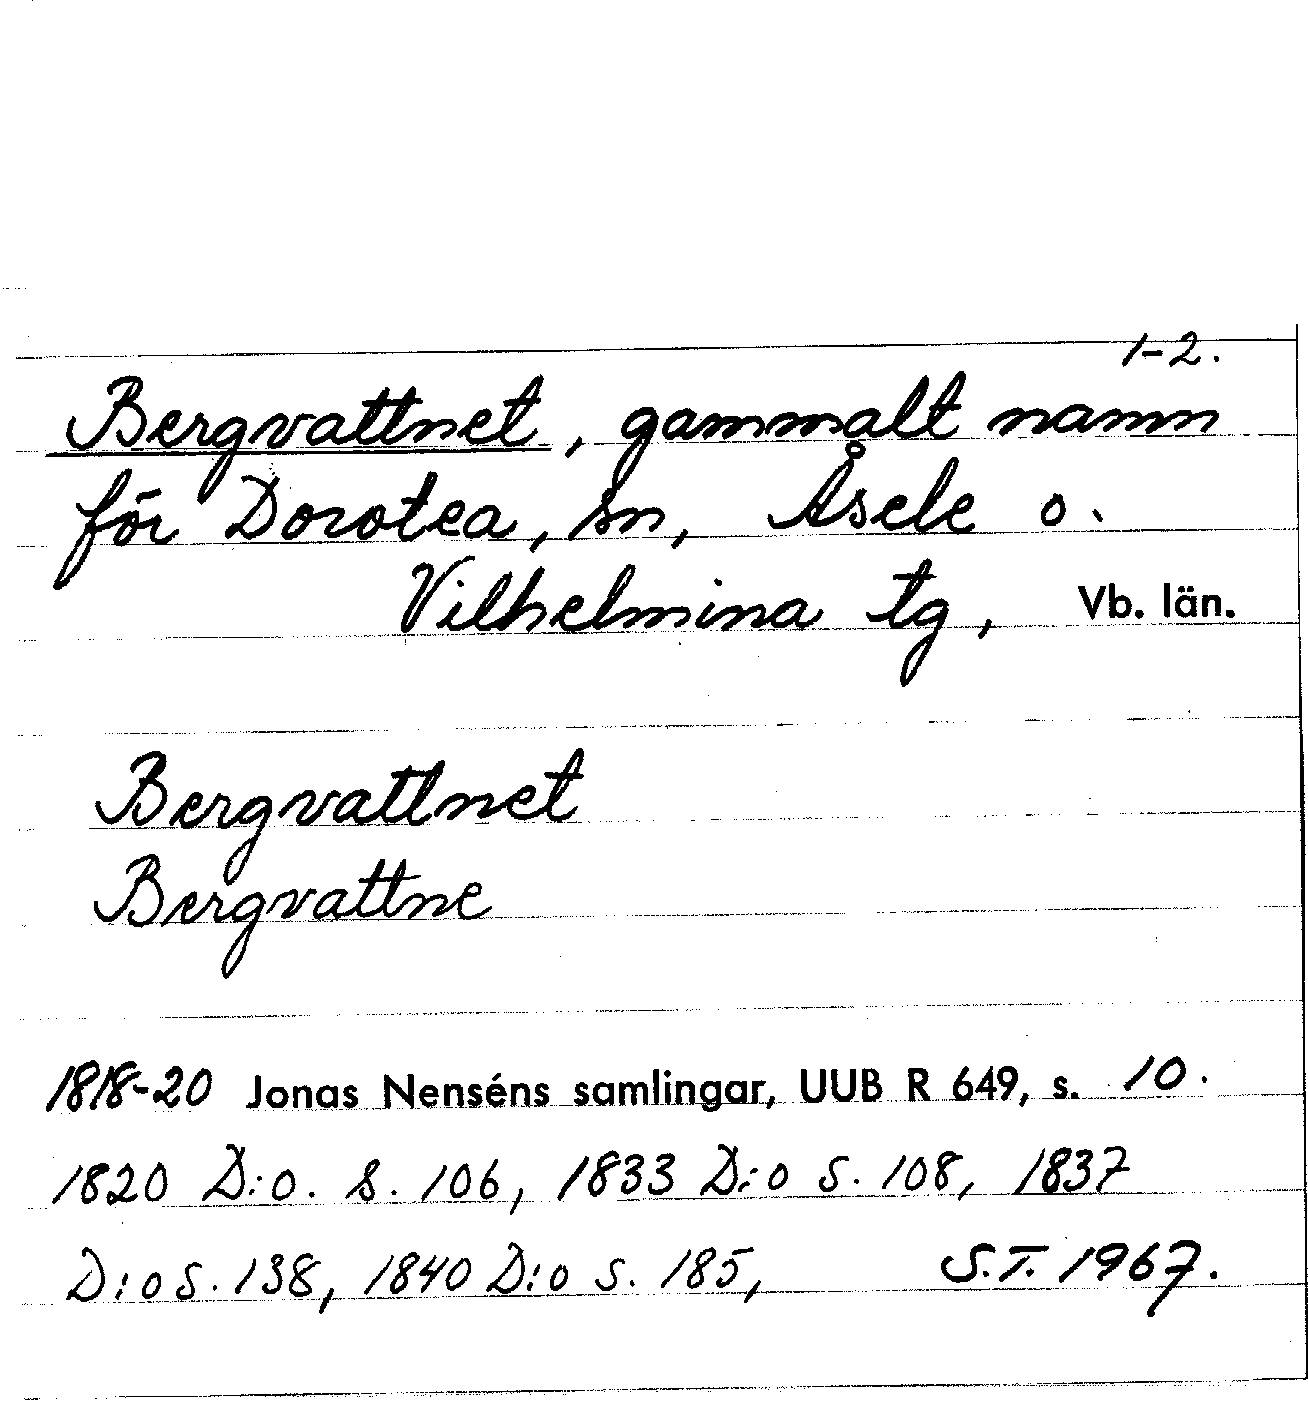 1-2.
Bergvattnet, gammalt namn
för Dorotea, sn, Åsele o.
Vilhelmina tg, Vb. län.
Bergvattnet
Bergvattne
1818-20 Jonas Nenséns samlingar, UUB R 649, s. 10.
1820 D:o. s. 106, 1833 D:o s. 108, 1837
D:o s. 138, 1840 D:o s. 185, S.T. 1967.